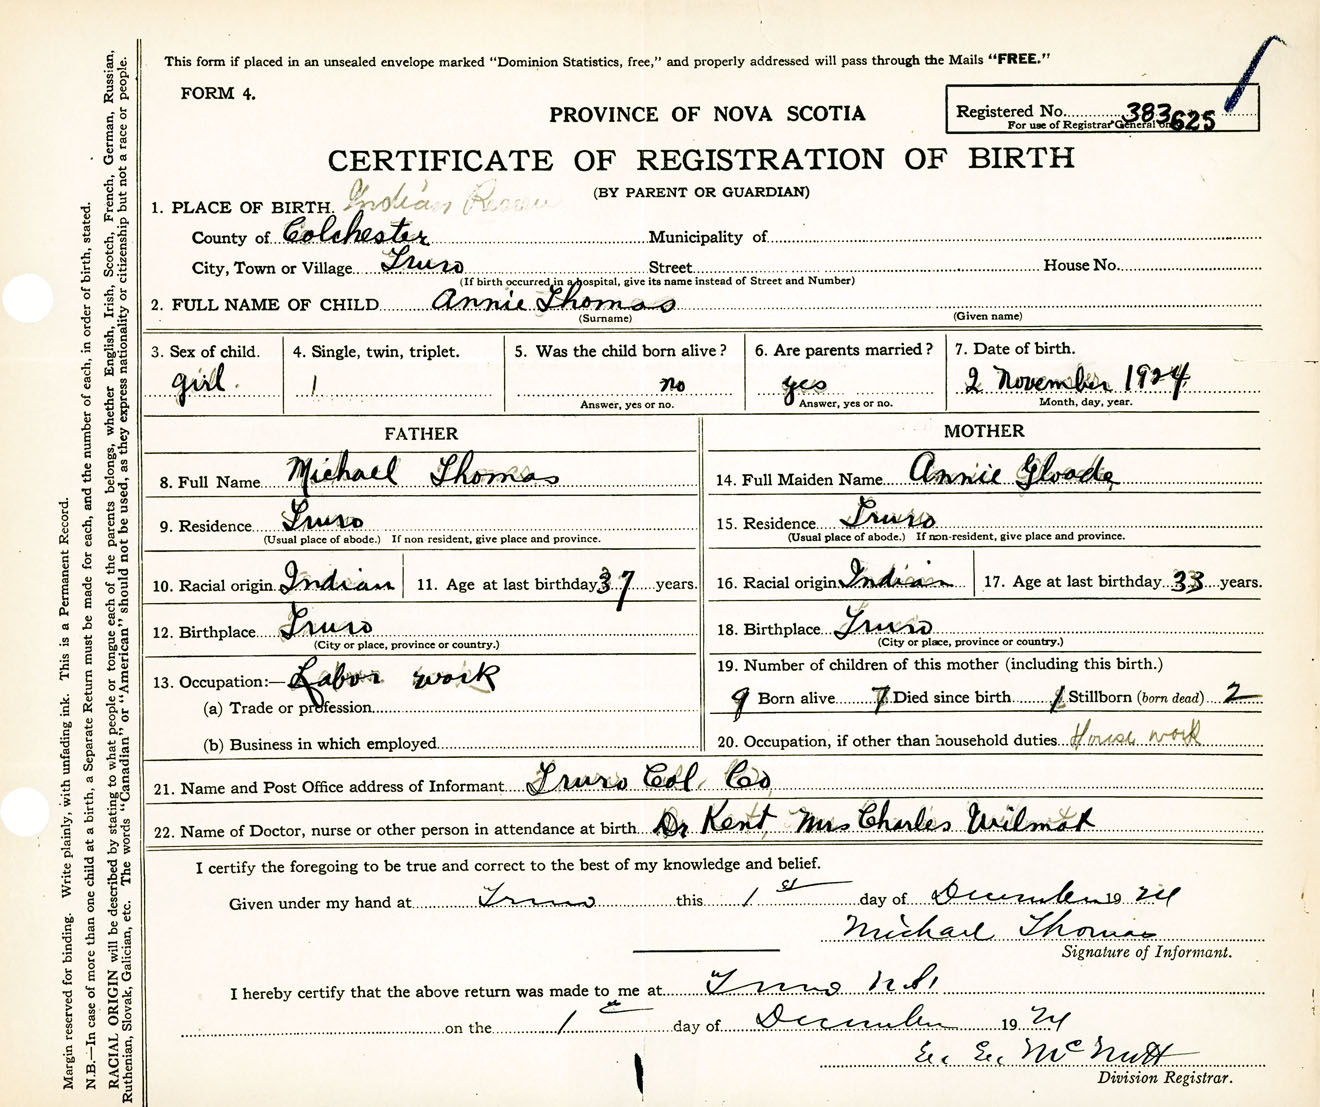 This form if placed in an unsealed envelope marked "Dominion Statistics, free," and properly addressed will pass through the Mails "FREE."
FORM 4.
PROVINCE OF NOVA SCOTIA
Registered No. 383625
For use of Registrar General only
CERTIFICATE OF REGISTRATION OF BIRTH
(BY PARENT OR GUARDIAN)
1. PLACE OF BIRTH. Indian
County of Colchester Municipality of
City, Town or Village Truro Street House No.
(If birth occurred in a hospital, give its name instead of Street and Number)
2. FULL NAME OF CHILD Annie Thomas
(Surname) (Given name)
3. Sex of child. 4. Single, twin, triplet. 5. Was the child born alive? 6. Are parents married? 7. Date of birth.
girl 1 no yes 2 November 1924
Answer, yes or no. Answer, yes or no. Month, day, year.
FATHER MOTHER
8. Full Name Michael Thomas 14. Full Maiden Name Annie Gloade
9. Residence Truro 15. Residence Truro
(Usual place of abode.) If non resident, give place and province. (Usual place of abode.) If non-resident, give place and province.
10. Racial origin Indian 11. Age at last birthday 37 years. 16. Racial origin Indian 17. Age at last birthday 33 years.
12. Birthplace Truro 18. Birthplace Truro
(City or place, province or country.) (City or place, province or country.)
13. Occupation:— Labor work 19. Number of children of this mother (including this birth.)
(a) Trade or profession 9 Born alive 7 Died since birth 1 Stillborn (born dead) 2
(b) Business in which employed 20. Occupation, if other than household duties House work
21. Name and Post Office address of Informant Truro Col. Co
22. Name of Doctor, nurse or other person in attendance at birth Dr Kent, Mrs Charles Wilmot
I certify the foregoing to be true and correct to the best of my knowledge and belief.
Given under my hand at Truro this 1st day of December 1924
Michael Thomas
Signature of Informant.
I hereby certify that the above return was made to me at Truro N.S.
on the 1st day of December 1924
E. E. McNutt
Division Registrar.
Margin reserved for binding. Write plainly, with unfading ink. This is a Permanent Record.
N.B.—In case of more than one child at a birth, a Separate Return must be made for each, and the number of each, in order of birth, stated.
RACIAL ORIGIN will be described by stating to what people or tongue each of the parents belongs, whether English, Irish, Scotch, French, German, Russian,
Ruthenian, Slovak, Galician, etc. The words "Canadian" or "American" should not be used, as they express nationality or citizenship but not a race or people.